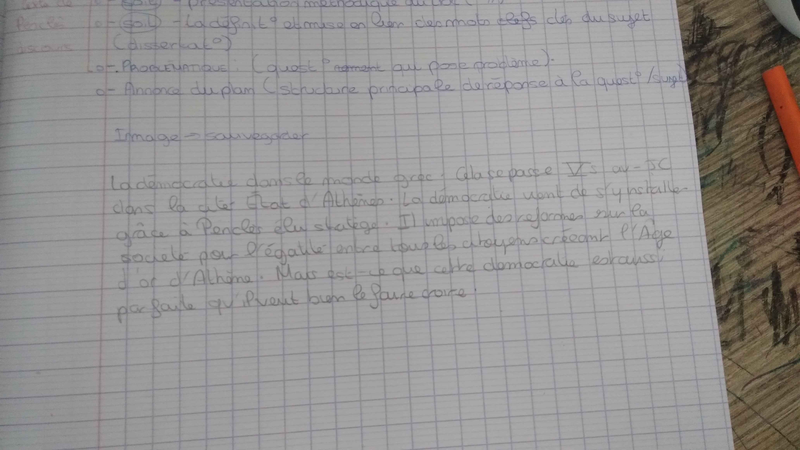 o- soit - présentation méthodique du
o- soit - La définit° et mise en lien des mots clefs clés du sujet
(dissertat°)
o- PROBLÉMATIQUE: (quest° qui pose problème).
o- Annonce du plan (structure principale de réponse à la quest°/sujet
Immage → sauvegarder
La démocratie dans le monde grec. Cela se passe Vs av-JC
dans la cité État d'Athènes. La démocratie vient de s'y installer
grâce à Périclès élu stratège. Il impose des réformes sur la
société pour l'égalité entre tous les citoyens créeant l'Age
d'or d'Athène. Mais est-ce que cette démocratie est aussi
parfaite qu'il veut bien le faire croire?